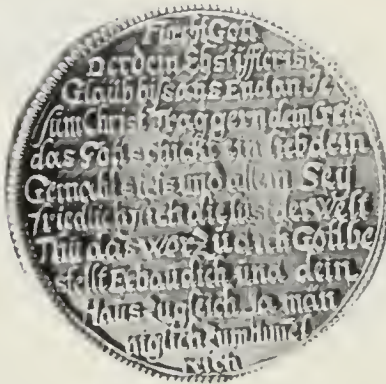 Fürcht Gott
Der dein Ehstiffter ist
Glaub bis ans End an Je
sum Christ Trag gern dein Creu
das Gott schickt zu lieb dein
Gemahl stets und allein Sey
friedlich flich die lust der Welt
Thu das worzu dich Gott be
stelt Erbau dich und dein
Haus zugleich Ja män
niglich zum Himel
reich